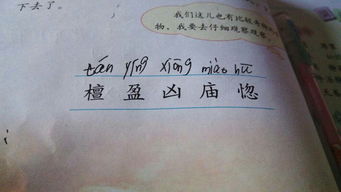 下去了。
我们这儿也有比较
物，我要去仔细观察观察。
tán yíng xiōng miào hū
檀 盈 凶 庙 惚